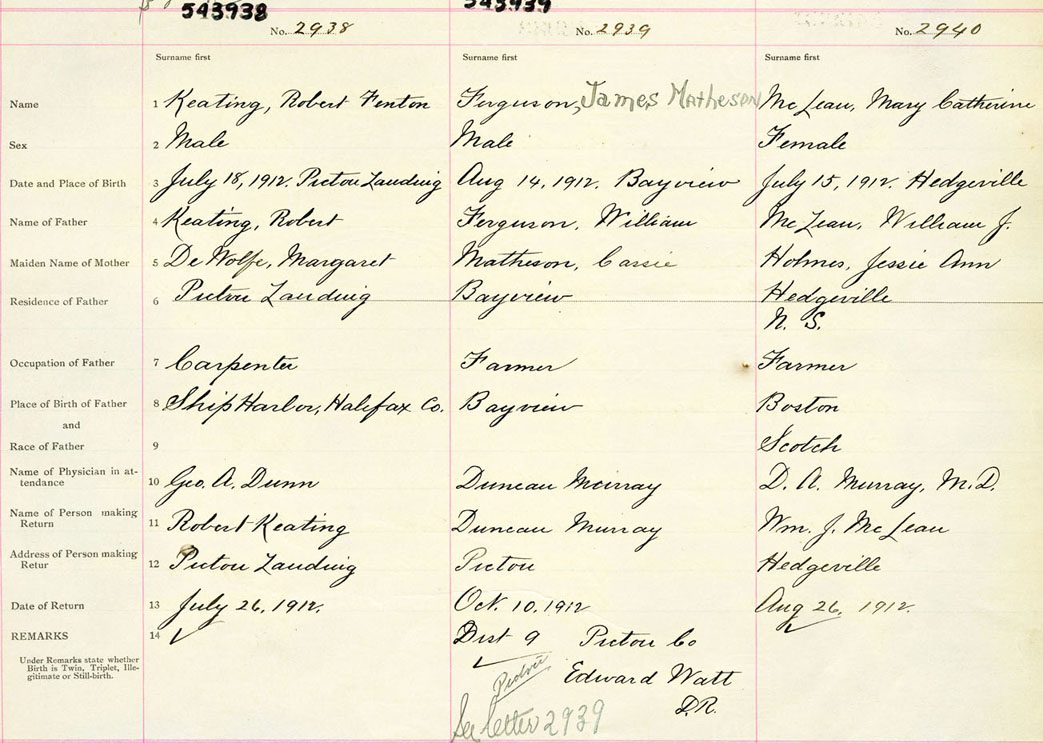 543938 543939
No. 2938 No. 2939 No. 2940
Surname first Surname first Surname first
Name 1 Keating, Robert Fenton Ferguson, James Matheson McLean, Mary Catherine
Sex 2 Male Male Female
Date and Place of Birth 3 July 18, 1912. Pictou Landing Aug 14, 1912. Bayview July 15, 1912. Hedgeville
Name of Father 4 Keating, Robert Ferguson, William McLean, William J.
Maiden Name of Mother 5 De Wolfe, Margaret Matheson, Cassie Holmes, Jessie Ann
Residence of Father 6 Pictou Landing Bayview Hedgeville
N. S.
Occupation of Father 7 Carpenter Farmer Farmer
Place of Birth of Father 8 Ship Harbor, Halifax Co. Bayview Boston
and
Race of Father 9 Scotch
Name of Physician in at-
tendance 10 Geo. A. Dunn Duncan Murray D. A. Murray, M.D.
Name of Person making
Return 11 Robert Keating Duncan Murray Wm. J. McLean
Address of Person making
Retur 12 Pictou Landing Pictou Hedgeville
Date of Return 13 July 26, 1912. Oct. 10, 1912 Aug 26, 1912.
REMARKS 14 Dist 9 Pictou Co
Under Remarks state whether
Birth is Twin, Triplet, Ille-
gitimate or Still-birth.
Pictou Edward Watt
D.R.
See letter 2939